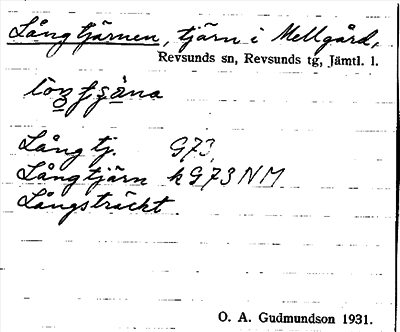 Långtjärnen, tjärn i Mellgård,
Revsunds sn, Revsunds tg, Jämtl. l.
Långtj. G73
Långtjärn kG73NM
Långsträckt
O. A. Gudmundson 1931.